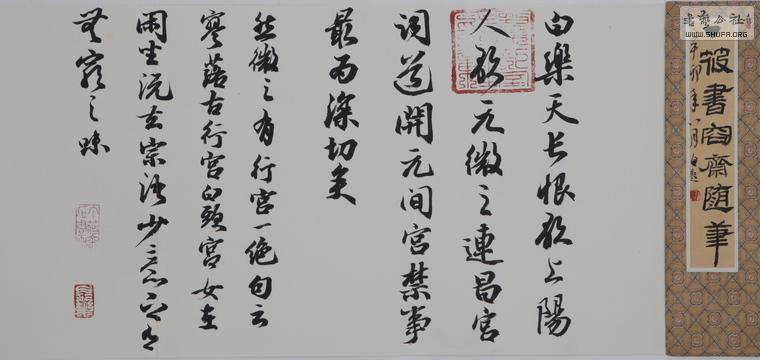 書藝公社
WWW.SHUFA.ORG
書容齋隨筆
卯年八月
白樂天長恨歌上陽
人歌元微之連昌宮
詞道開元間宮禁事
最為深切矣
然微之有行宮一絕句云
寥落古行宮白頭宮女在
閑坐說玄宗語少意足有
無窮之味